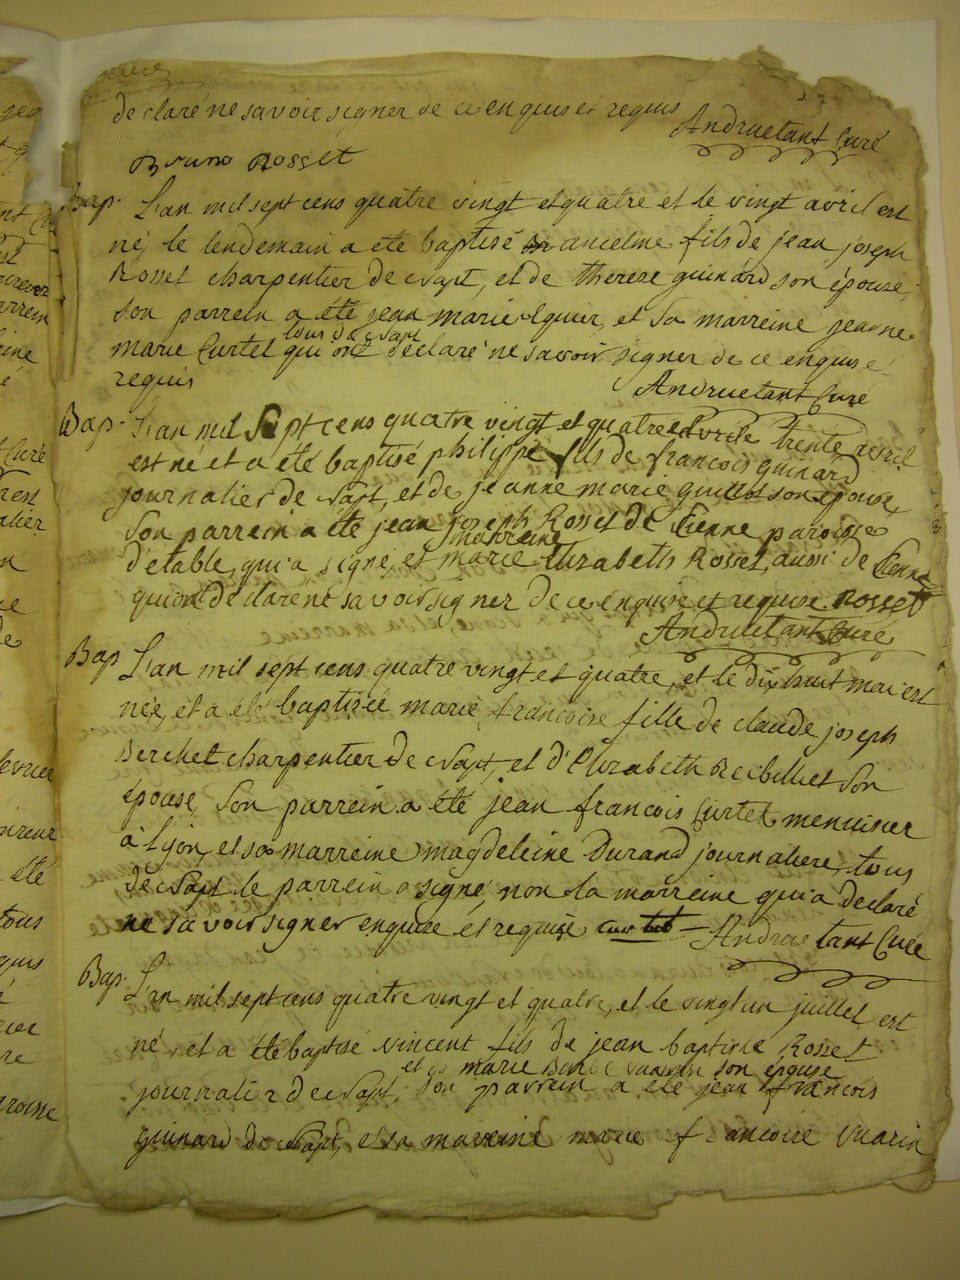 de claré ne savoir signer de ce enquis et requis Andruetant Curé
Bruno Rosset
Bap. L'an mil sept cens quatre vingt et quatre et le vingt avril est
né, le lendemain a eté baptisé ancelme fils de jean joseph
Rosset charpentier de et de thereze guinard son épouse,
son parrein a été jean marie et sa marreine jeanne
tous de
marie Curtet qui ont declaré ne savoir signer de ce enquis e
requis Andruetant Curé
Bap. L'an mil sept cens quatre vingt et quatre trente avril
est né et a été baptisé philippe fils de francois guinard
journalier de et de jeanne marie son épouse,
son parrein a été jean joseph Rosset de paroisse
marreine
d'etable, qui a signé, et marie Elizabeth Rosset, aussi de
qui ont declaré ne savoir signer de ce enquise et requise Rosset
Andruetant Curé
Bap L'an mil sept cens quatre vingt et quatre, et le dix huit mai est
née, et a été baptisée marie francoise fille de claude joseph
Berchet charpentier de et d'Elizabeth son
épouse, son parrein a été jean francois Curtet menuisier
à Lyon, et sa marreine magdeleine Durand journaliere, tous
de le parrein a signé, non la marreine qui a declaré
ne savoir signer enquise et requise curtet Andruetant Curé
Bap. L'an mil sept cens quatre vingt et quatre, et le vingt un juillet est
né, et a été baptisé vincent fils de jean baptiste Rosset
et de marie son épouse
journalier de son parrein a été jean francois
guinard de et sa marreine marie francoise vuarin